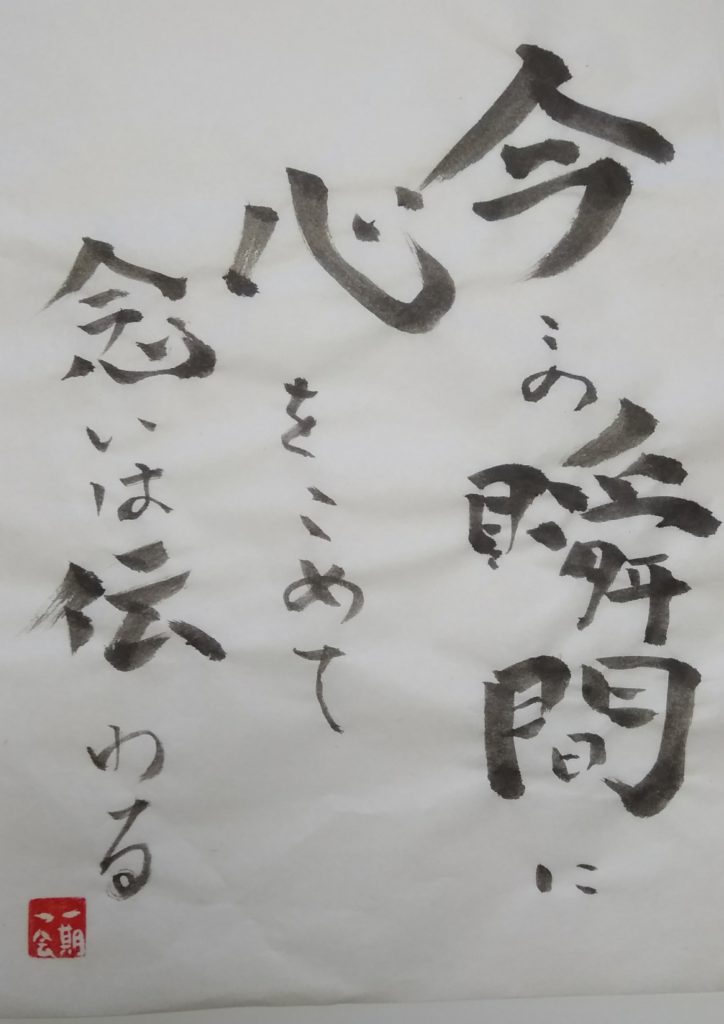 今この瞬間に
心をこめて
念いは伝わる
一期一会